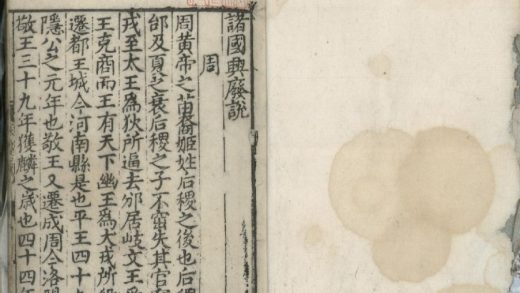 諸國興廢說
周
周黄帝之苗裔姬姓后稷之後也后稷
邰及夏之衰后稷之子不窋失其官
戎至太王爲狄所逼去邠居岐文王
王克商而王有天下幽王爲犬戎所
遷都王城今河南縣是也平王四十
隱公之元年也敬王又遷成周今洛
敬王三十九年獲麟之歲也四十四年